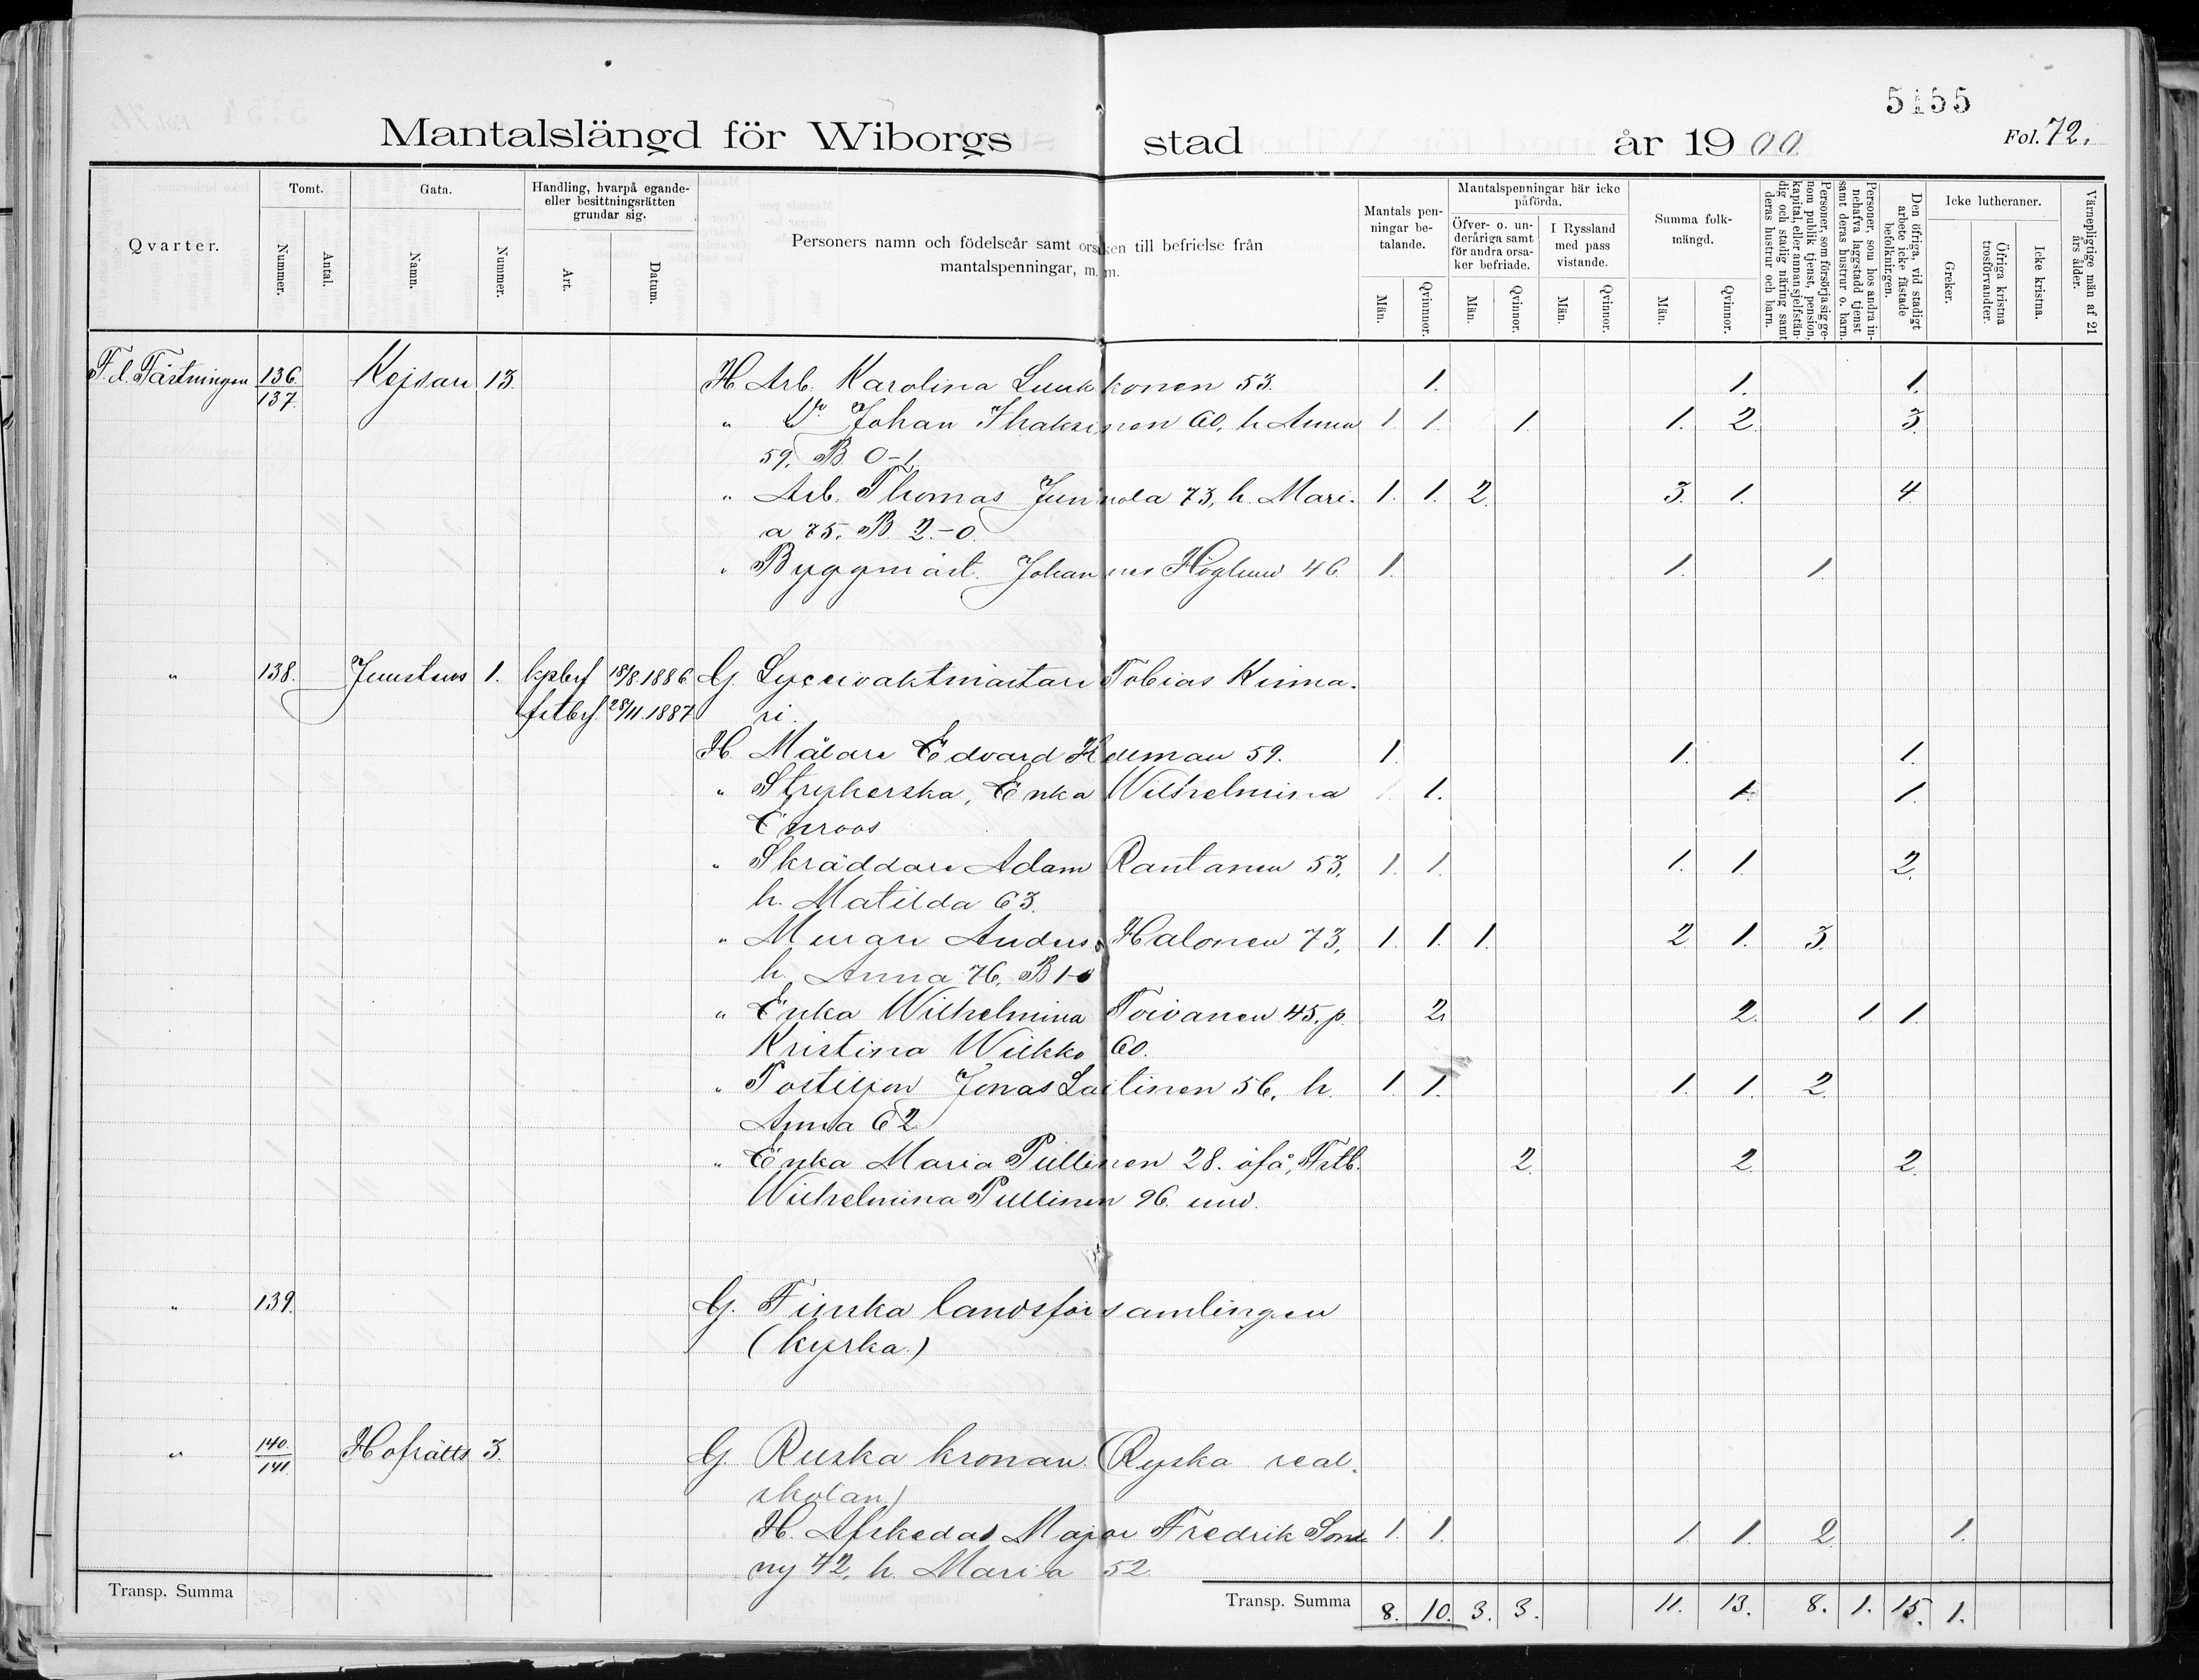 5155
Mantalslängd för Wiborgs stad år 1900 Fol. 72.
Qvarter. Tomt. Nummer. Antal. Gata. Namn. Nummer. Handling, hvarpå egande- eller besittningsrätten grundar sig. Art. Datum.
Personers namn och födelseår samt orsaken till befrielse från mantalspenningar, m. m.
Mantals penningar betalande. Män. Qvinnor. Mantalspenningar här icke påförda. Öfver- o. underåriga samt för andra orsaker befriade. Män. Qvinnor. I Ryssland med pass vistande. Män. Qvinnor. Summa folkmängd. Män. Qvinnor.
Personer, som försörja sig genom publik tjenst, pension, kapital, eller annan sjelfständig och stadig näring samt deras hustrur och barn.
Personer, som hos andra innehafva laggstadd tjenst samt deras hustrur o. barn.
Den öfriga, vid stadigt arbete icke fästade befolkningen.
Icke lutheraner. Greker. Öfriga kristna trosförvandter. Icke kristna. Värnepligtige män af 21 års ålder.
F. d. Fästningen 136. Kejsare 13. H Arb. Karolina Luukkonen 53. 1. 1. 1.
137. " D:o Johan Ihaksinen 60, h. Anna 1. 1. 1. 1. 2. 3.
59, B. 0-1.
" Arb. Thomas Junnola 73, h. Mari- 1. 1. 2. 3. 1. 4.
a 75. B. 2.-0.
" Byggmäst. Johannes Höglund 46. 1. 1. 1.
" 138. Juustens 1. kpbrf 18/8.1886. G. Lyceivaktmästare Tobias Kinna-
fstbrf. 28/11.1887 ri.
H. Målare Edvard Hedman 59. 1. 1. 1.
" Strykerska, Enka Wilhelmina 1. 1. 1.
Enroos
" Skräddare Adam Rantanen 53, 1. 1. 1. 1. 2.
h. Matilda 63.
" Murare Anders Halonen 73, 1. 1. 1. 2 1. 3.
h. Anna 76, B 1-0
" Enka Wilhelmina Toivanen 45. p. 2. 2. 1. 1.
Kristina Wilkko 60.
" Postiljon Jonas Laitinen 56, h. 1. 1. 1. 1. 2.
Anna 62.
" Enka Maria Pullinen 28. öfå, Frtb. 2. 2. 2.
Wilhelmina Pullinen 96. und.
" 139. G. Finska landsförsamlingen
(kyrka.)
" 140. Hofrätts 3. G. Ruska kronan (Ryska real-
141. skolan)
H. Afskedad Major Fredrik 1. 1. 1. 1. 2. 1.
ny 42, h. Maria 52.
Transp. Summa Transp. Summa 8. 10. 3. 3. 11. 13. 8. 1. 15. 1.